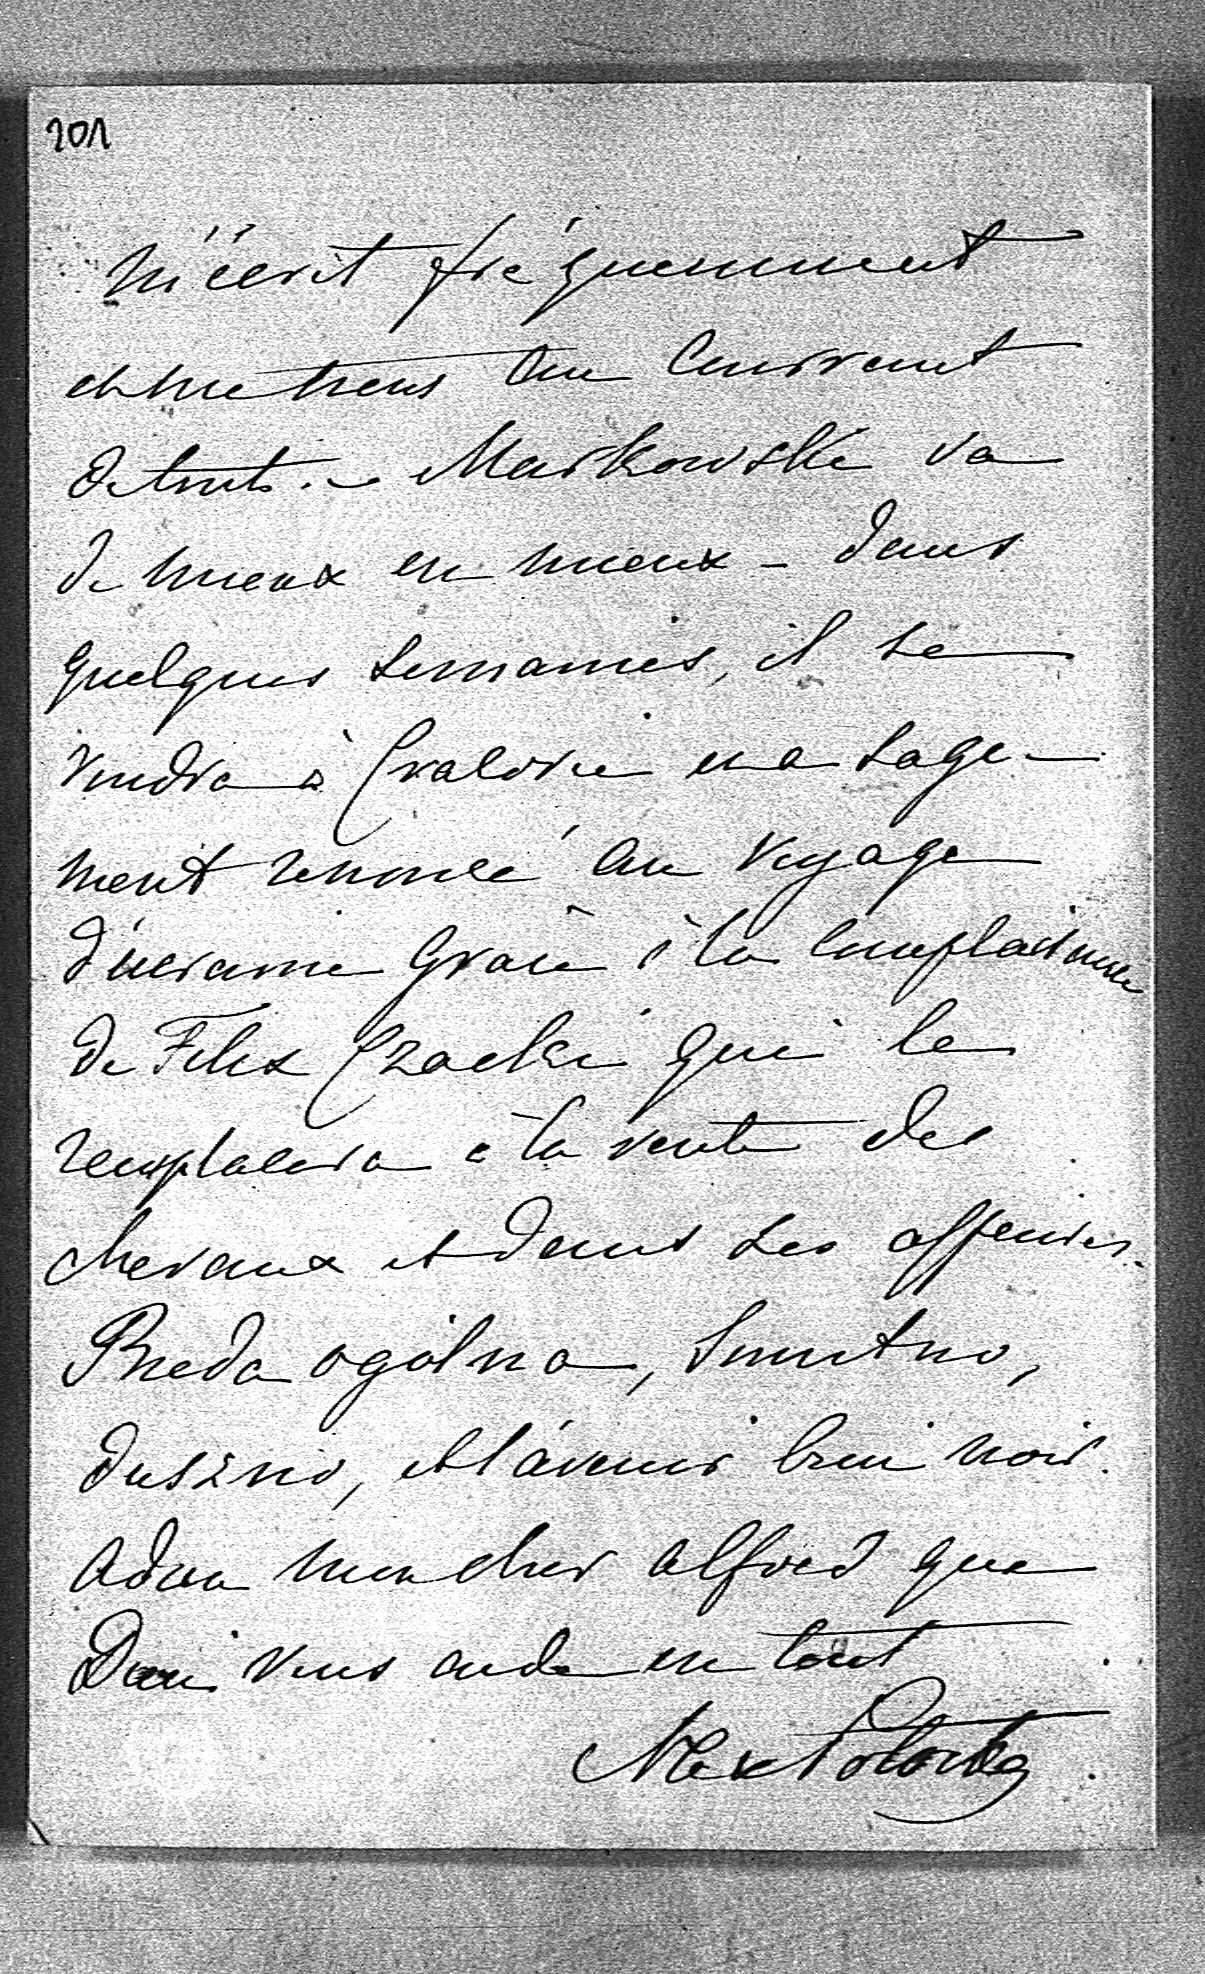 201
m'écrit fréquemment
et me tiens au courrant
de tout. – Markowski va
de mieux en mieux – dans
quelques semaines, il se
rendra à Cracovie en a sage-
ment renoncé au voyage
d'ucraine grace à la complaisance
de Felix Czacki qui le
remplacera à la vente des
chevaux et dans ses affaires.
Bieda ogólna, smutno,
duszno, et l'avenir bien noir.
adieu mon cher alfred que
Dieu vous aide en tout
Alex Potocka